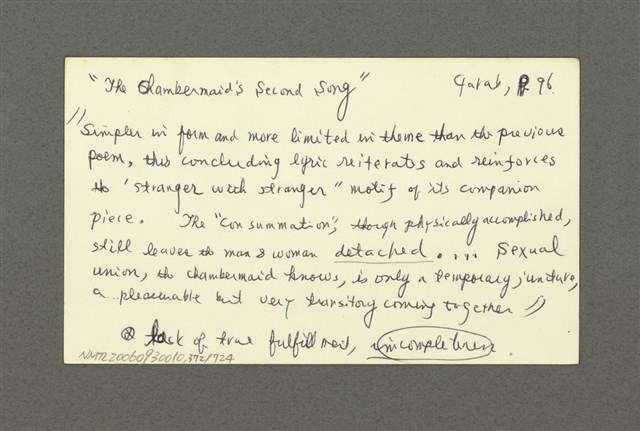 "The Chambermaid's Second Song" Garab, P. 96.
"Simpler in form and more limited in theme than the previous
poem, this concluding lyric reiterates and reinforces
the 'stranger with stranger" motif of its companion
piece. The "Consummation", though physically accomplished,
still leaves the man & woman detached .... Sexual
union, the chambermaid knows, is only a temporary juncture,
a... pleasurable but very transitory coming together"
lack of true fulfillment, incompleteness.
NMTL20060930010,372/724